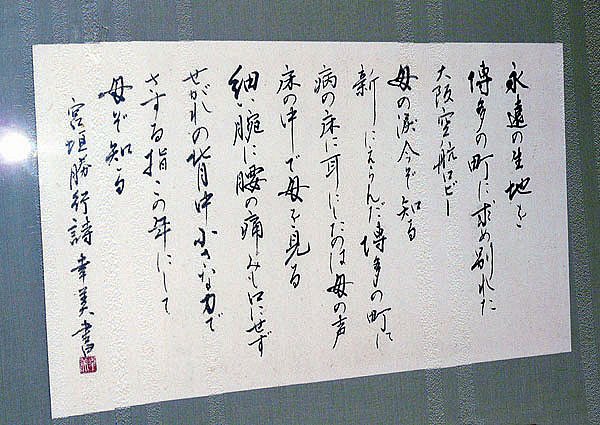 永遠の生地を
博多の町に求め別れた
大阪空航ロビー
母の涙今ぞ知る
新しにえらんだ博多の町に
病の床に耳にしたのは母の声
床の中で母を見る
細い腕に腰の痛みも口にせず
せがれの背中小さな力で
さする指この年にして
母ぞ知る
宮垣勝行詩 幸美書